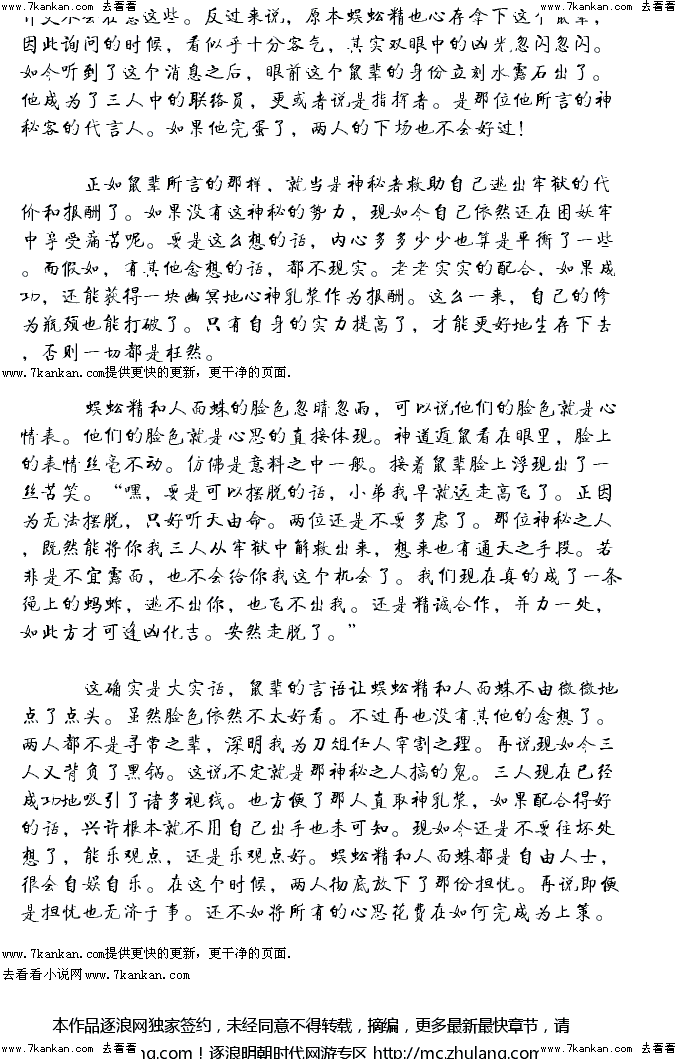 www.7kankan.com 去看看 www.7kankan.com 去看看 www.7kankan.com 去看看
因此询问的时候，看似乎十分客气，其实双眼中的凶光忽闪忽闪。
如今听到了这个消息之后，眼前这个鼠辈的身份立刻水露石出了。
他成为了三人中的联络员，更或者说是指挥者。是那位他所言的神
秘客的代言人。如果他完蛋了，两人的下场也不会好过！
正如鼠辈所言的那样，就当是神秘者救助自己逃出牢狱的代
价和报酬了。如果没有这神秘的势力，现如今自己依然还在困妖牢
中享受痛苦呢。要是这么想的话，内心多多少少也算是平衡了一些
。而假如，有其他念想的话，都不现实。老老实实的配合，如果成
功，还能获得一块幽冥地心神乳浆作为报酬。这么一来，自己的修
为瓶颈也能打破了。只有自身的实力提高了，才能更好地生存下去
，否则一切都是枉然。
www.7kankan.com提供更快的更新，更干净的页面.
蜈蚣精和人面蛛的脸色忽晴忽雨，可以说他们的脸色就是心
情表。他们的脸色就是心思的直接体现。神道遁鼠看在眼里，脸上
的表情丝毫不动。仿佛是意料之中一般。接着鼠辈脸上浮现出了一
丝苦笑。“嘿，要是可以摆脱的话，小弟我早就远走高飞了。正因
为无法摆脱，只好听天由命。两位还是不要多虑了。那位神秘之人
，既然能将你我三人从牢狱中解救出来，想来也有通天之手段。若
非是不宜露面，也不会给你我这个机会了。我们现在真的成了一条
绳上的蚂蚱，逃不出你，也飞不出我。还是精诚合作，并力一处，
如此方才可逢凶化吉。安然走脱了。”
这确实是大实话，鼠辈的言语让蜈蚣精和人面蛛不由微微地
点了点头。虽然脸色依然不太好看。不过再也没有其他的念想了。
两人都不是寻常之辈，深明我为刀俎任人宰割之理。再说现如今三
人又背负了黑锅。这说不定就是那神秘之人搞的鬼。三人现在已经
成功地吸引了诸多视线。也方便了那人直取神乳浆，如果配合得好
的话，兴许根本就不用自己出手也未可知。现如今还是不要往坏处
想了，能乐观点，还是乐观点好。蜈蚣精和人面蛛都是自由人士，
很会自娱自乐。在这个时候，两人彻底放下了那份担忧。再说即便
是担忧也无济于事。还不如将所有的心思花费在如何完成为上策。
www.7kankan.com提供更快的更新，更干净的页面.
去看看小说网www.7kankan.com
本作品逐浪网独家签约，未经同意不得转载，摘编，更多最新最快章节，请
www.7kankan.com 去看看 ng.com！逐浪明朝时代网游专区 http://mc.zhulang.com www.7kankan.com 去看看